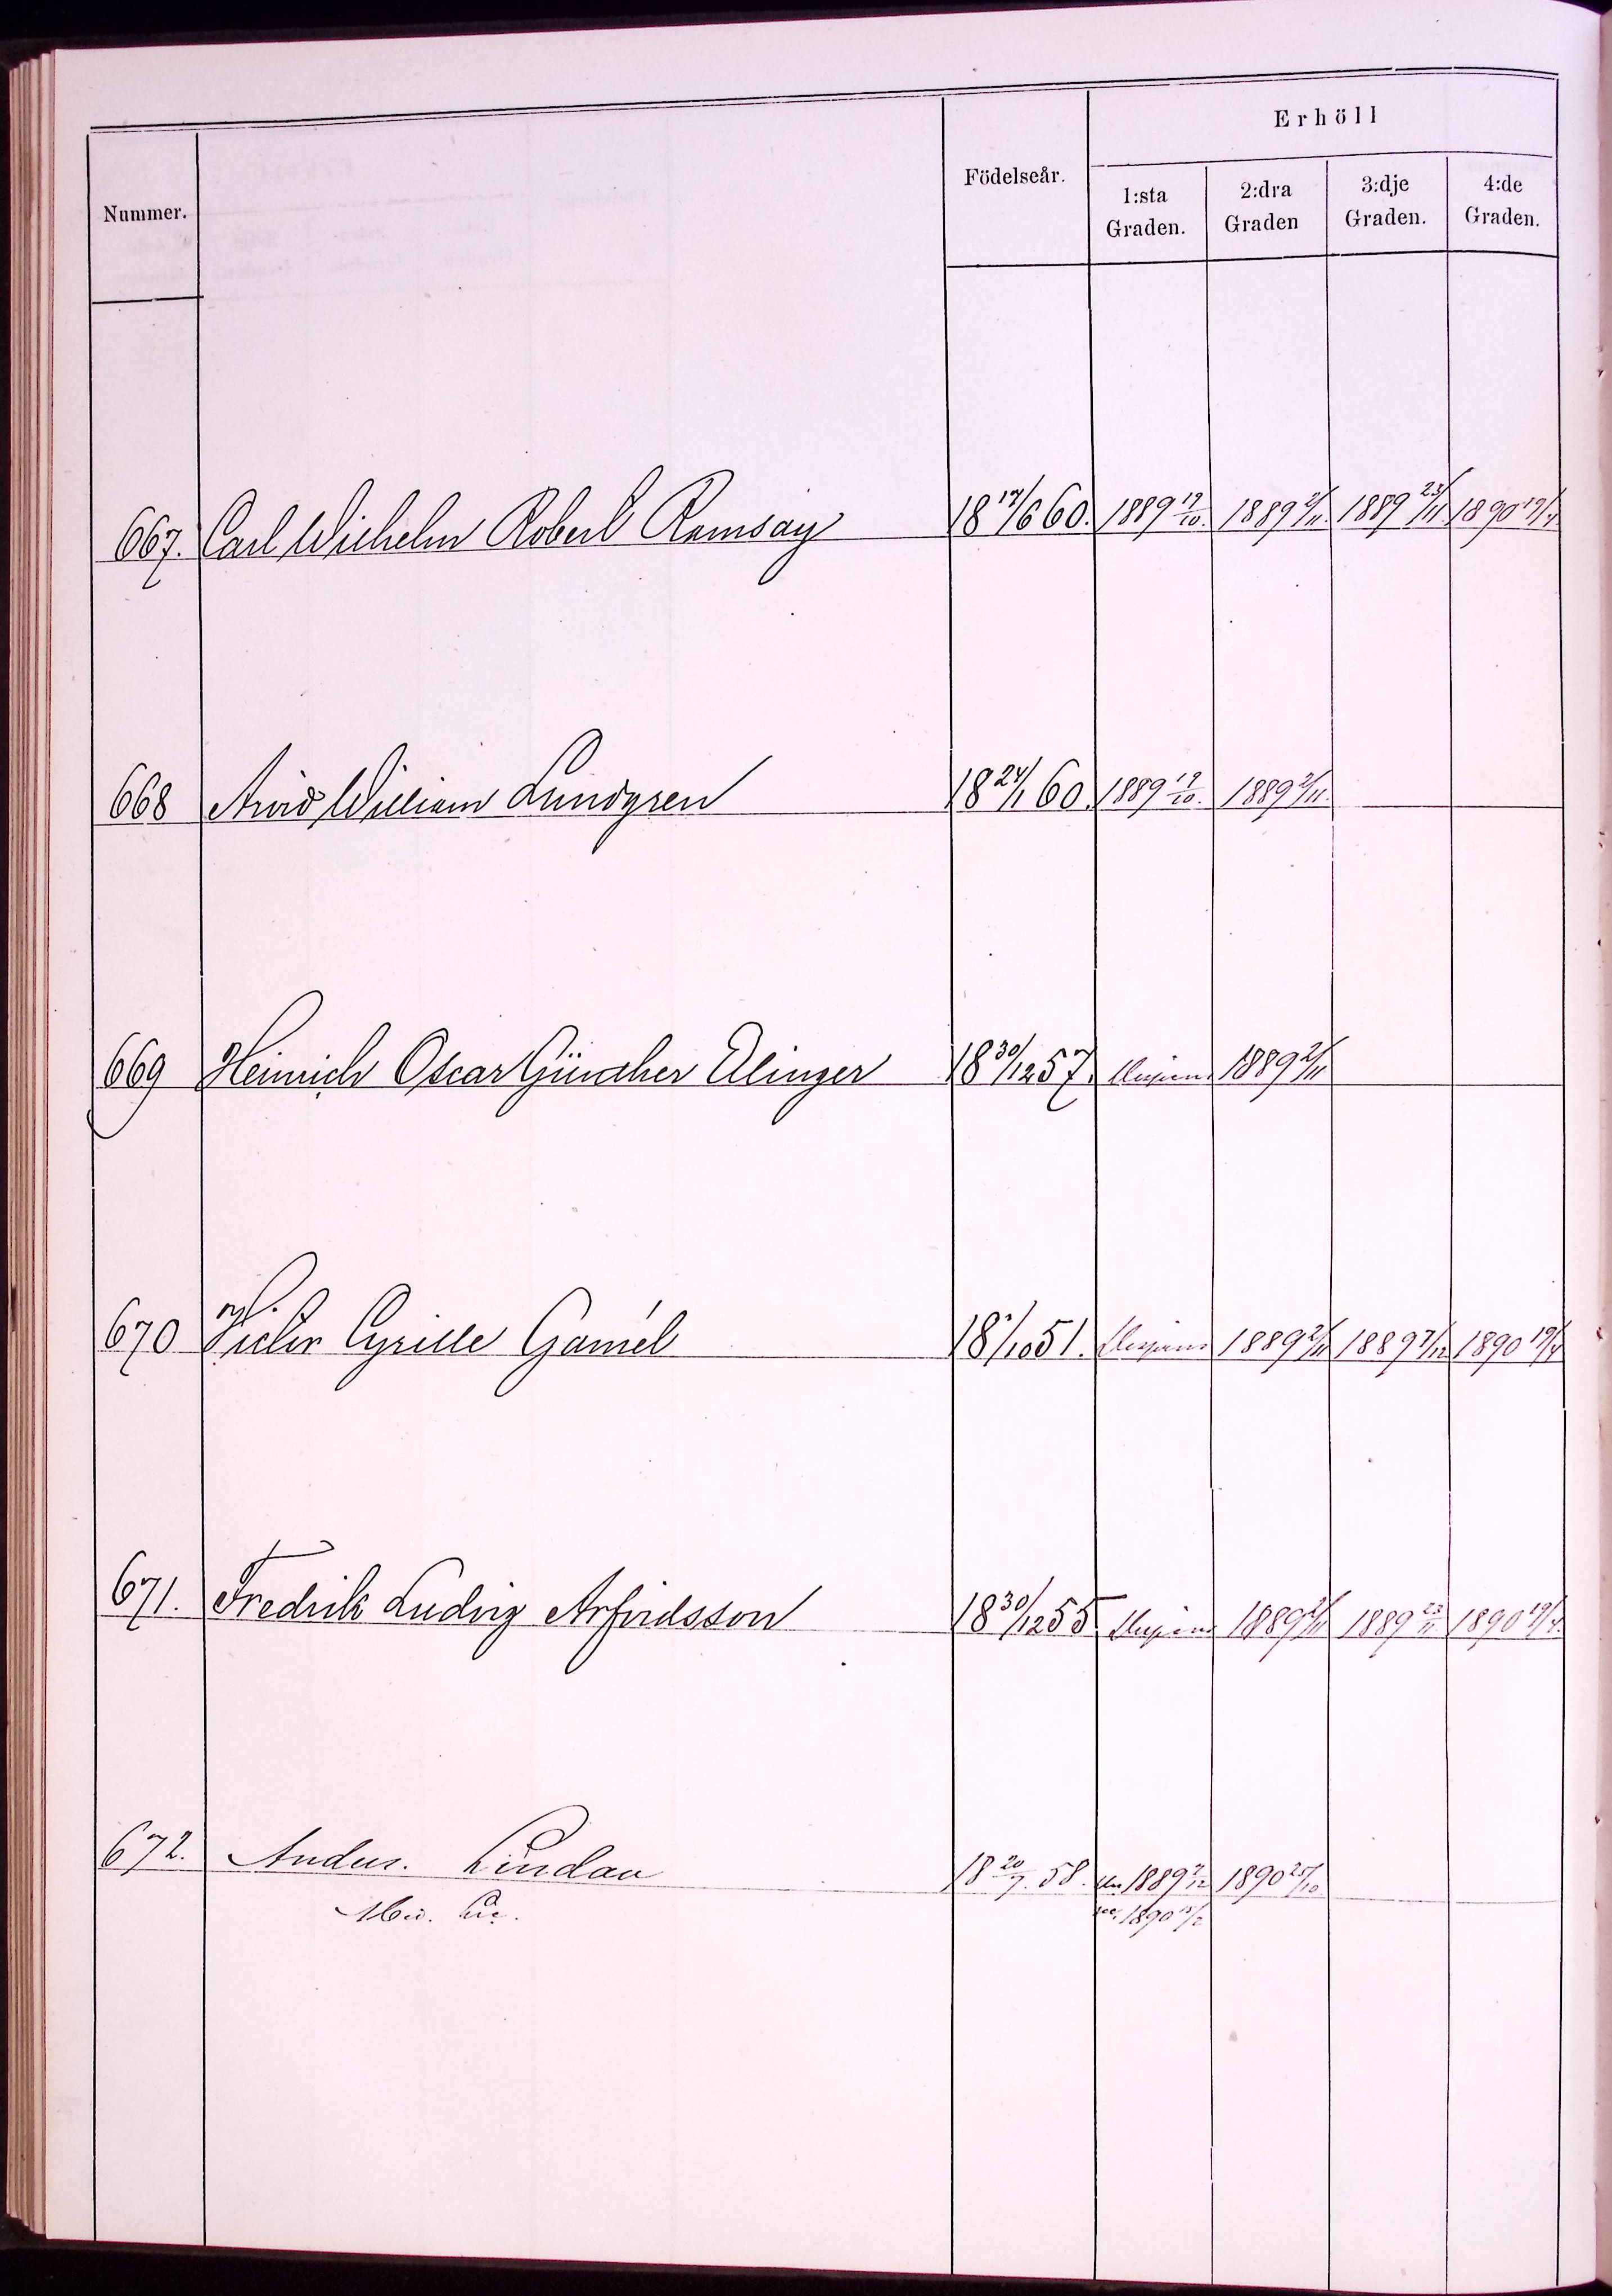 Nummer.
Födelseår.
Erhöll
1:sta Graden.
2:dra Graden
3:dje Graden.
4:de Graden.
667. Carl Wilhelm Robert Ramsay 18 17/6 60. 1889 19/10. 1889 2/11. 1889 23/11. 1890 19/4
668 Arvid William Lundgren 18 24/1 60. 1889 19/10. 1889 2/11.
669 Heinrich Oscar Günther Elinger 18 30/12 57. 1889 2/11
670 Victor Cyrille Gamél 18 1/10 51. 1889 2/11 1889 7/12 1890 19/4
671. Fredrik Ludvig Arfvidsson 18 30/12 55 1889 2/11 1889 23/11 1890 19/4.
672. Anders Lindau 18 20/7. 58. 1889 7/12 1890 25/10
1890 15/2